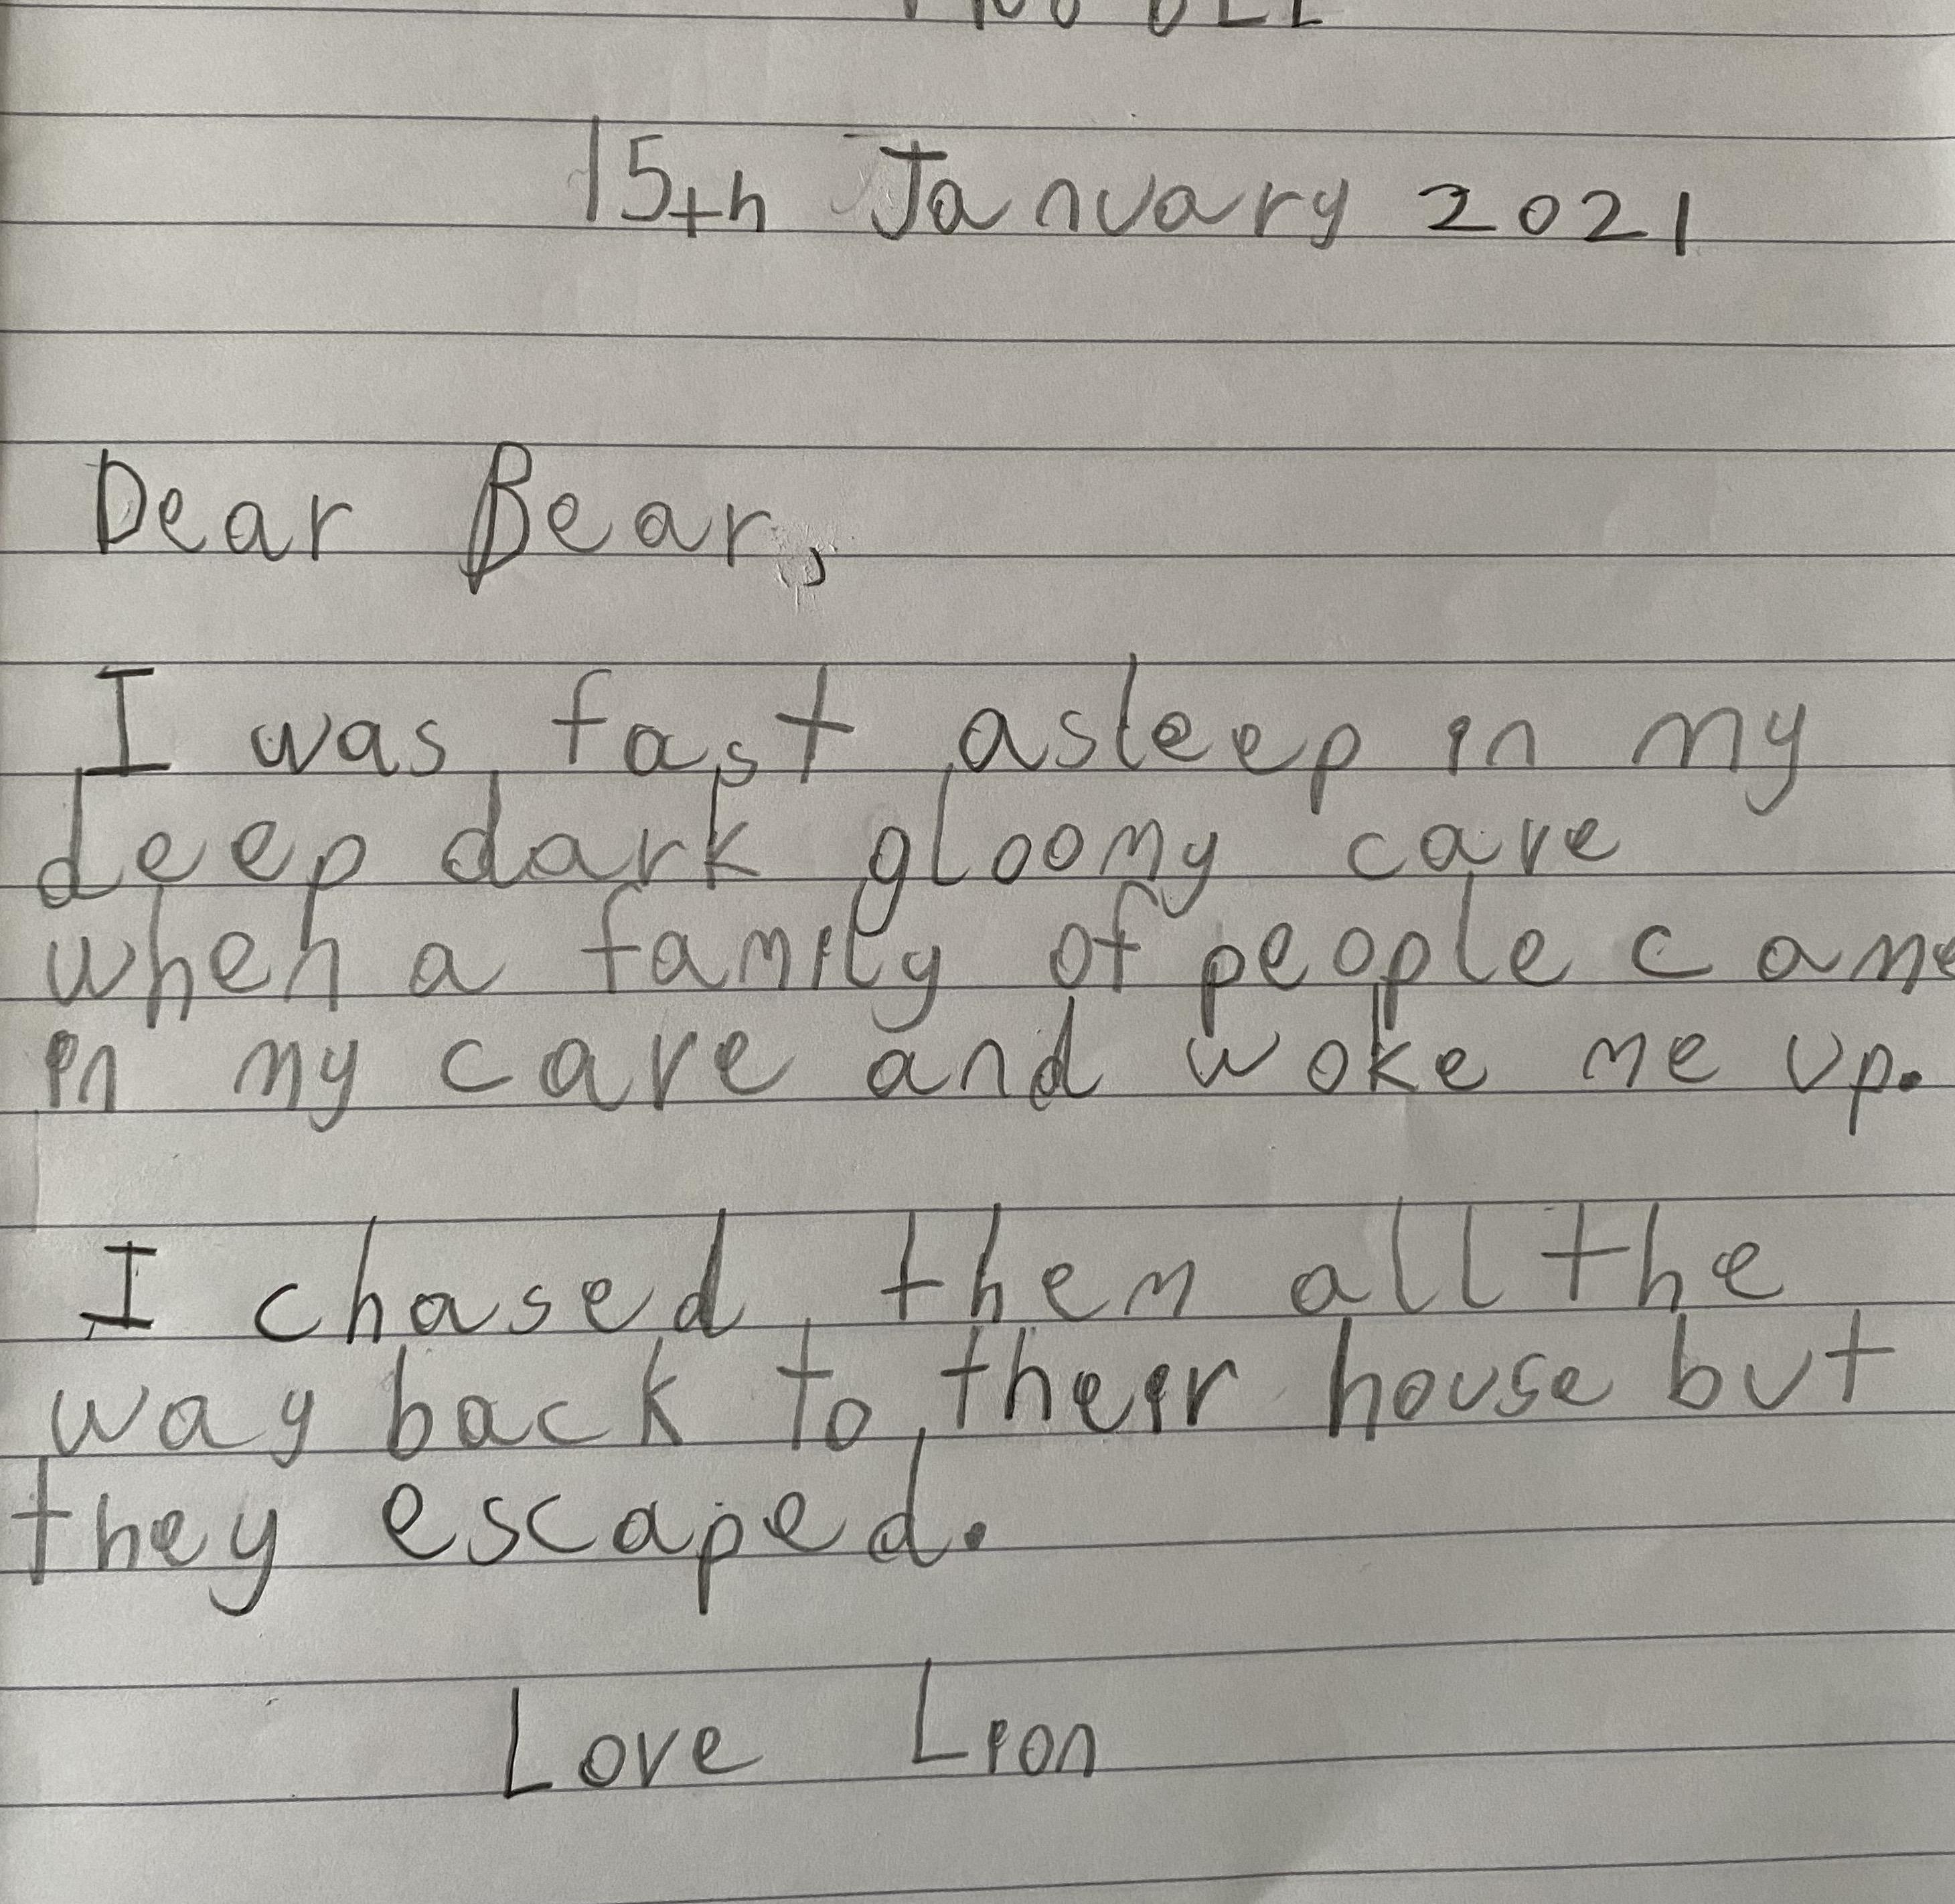 15th January 2021
Dear Bear,
I was fast asleep in my
deep dark gloomy cave
when a family of people came
in my cave and woke me up.
I chased them all the
way back to their house but
they escaped.
Love Lion